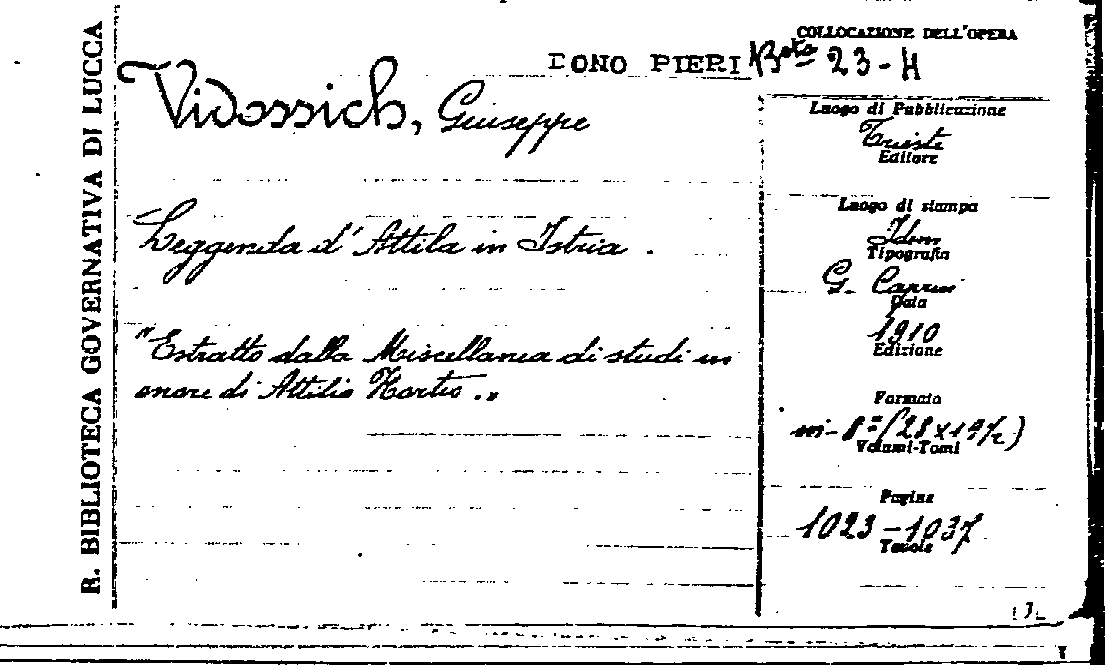 R. BIBLIOTECA GOVERNATIVA DI LUCCA
DONO PIERI
COLLOCAZIONE DELL'OPERA
Bta 23-H
Vidossich, Giuseppe
Leggenda d'Attila in Istria.
"Estratto dalla Miscellanea di studi in
onore di Attilio Hortis.„
Luogo di Pubblicazione
Trieste
Editore
Luogo di stampa
Idem
Tipografia
G. Caprin
Data
1910
Edizione
Formato
in-8º (28x19½)
Volumi-Tomi
Pagine
1023-1037
Tavole